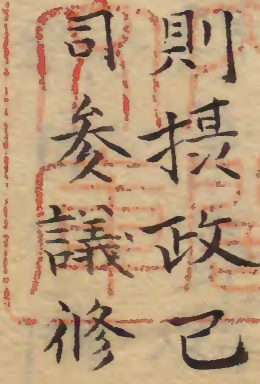 則摂政已
司参議修